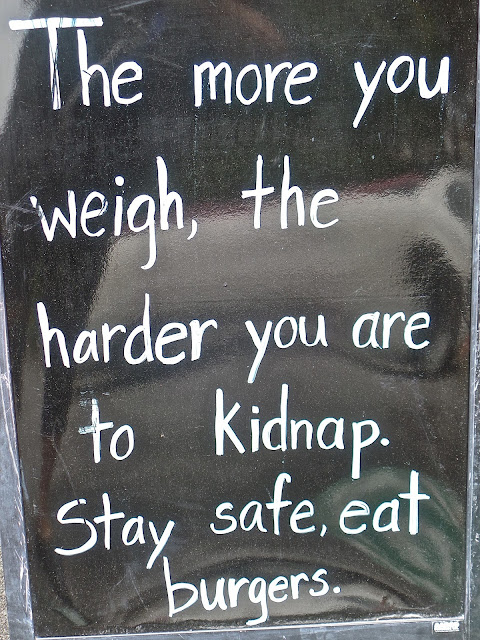 The more you
weigh, the
harder you are
to kidnap.
Stay safe, eat
burgers.